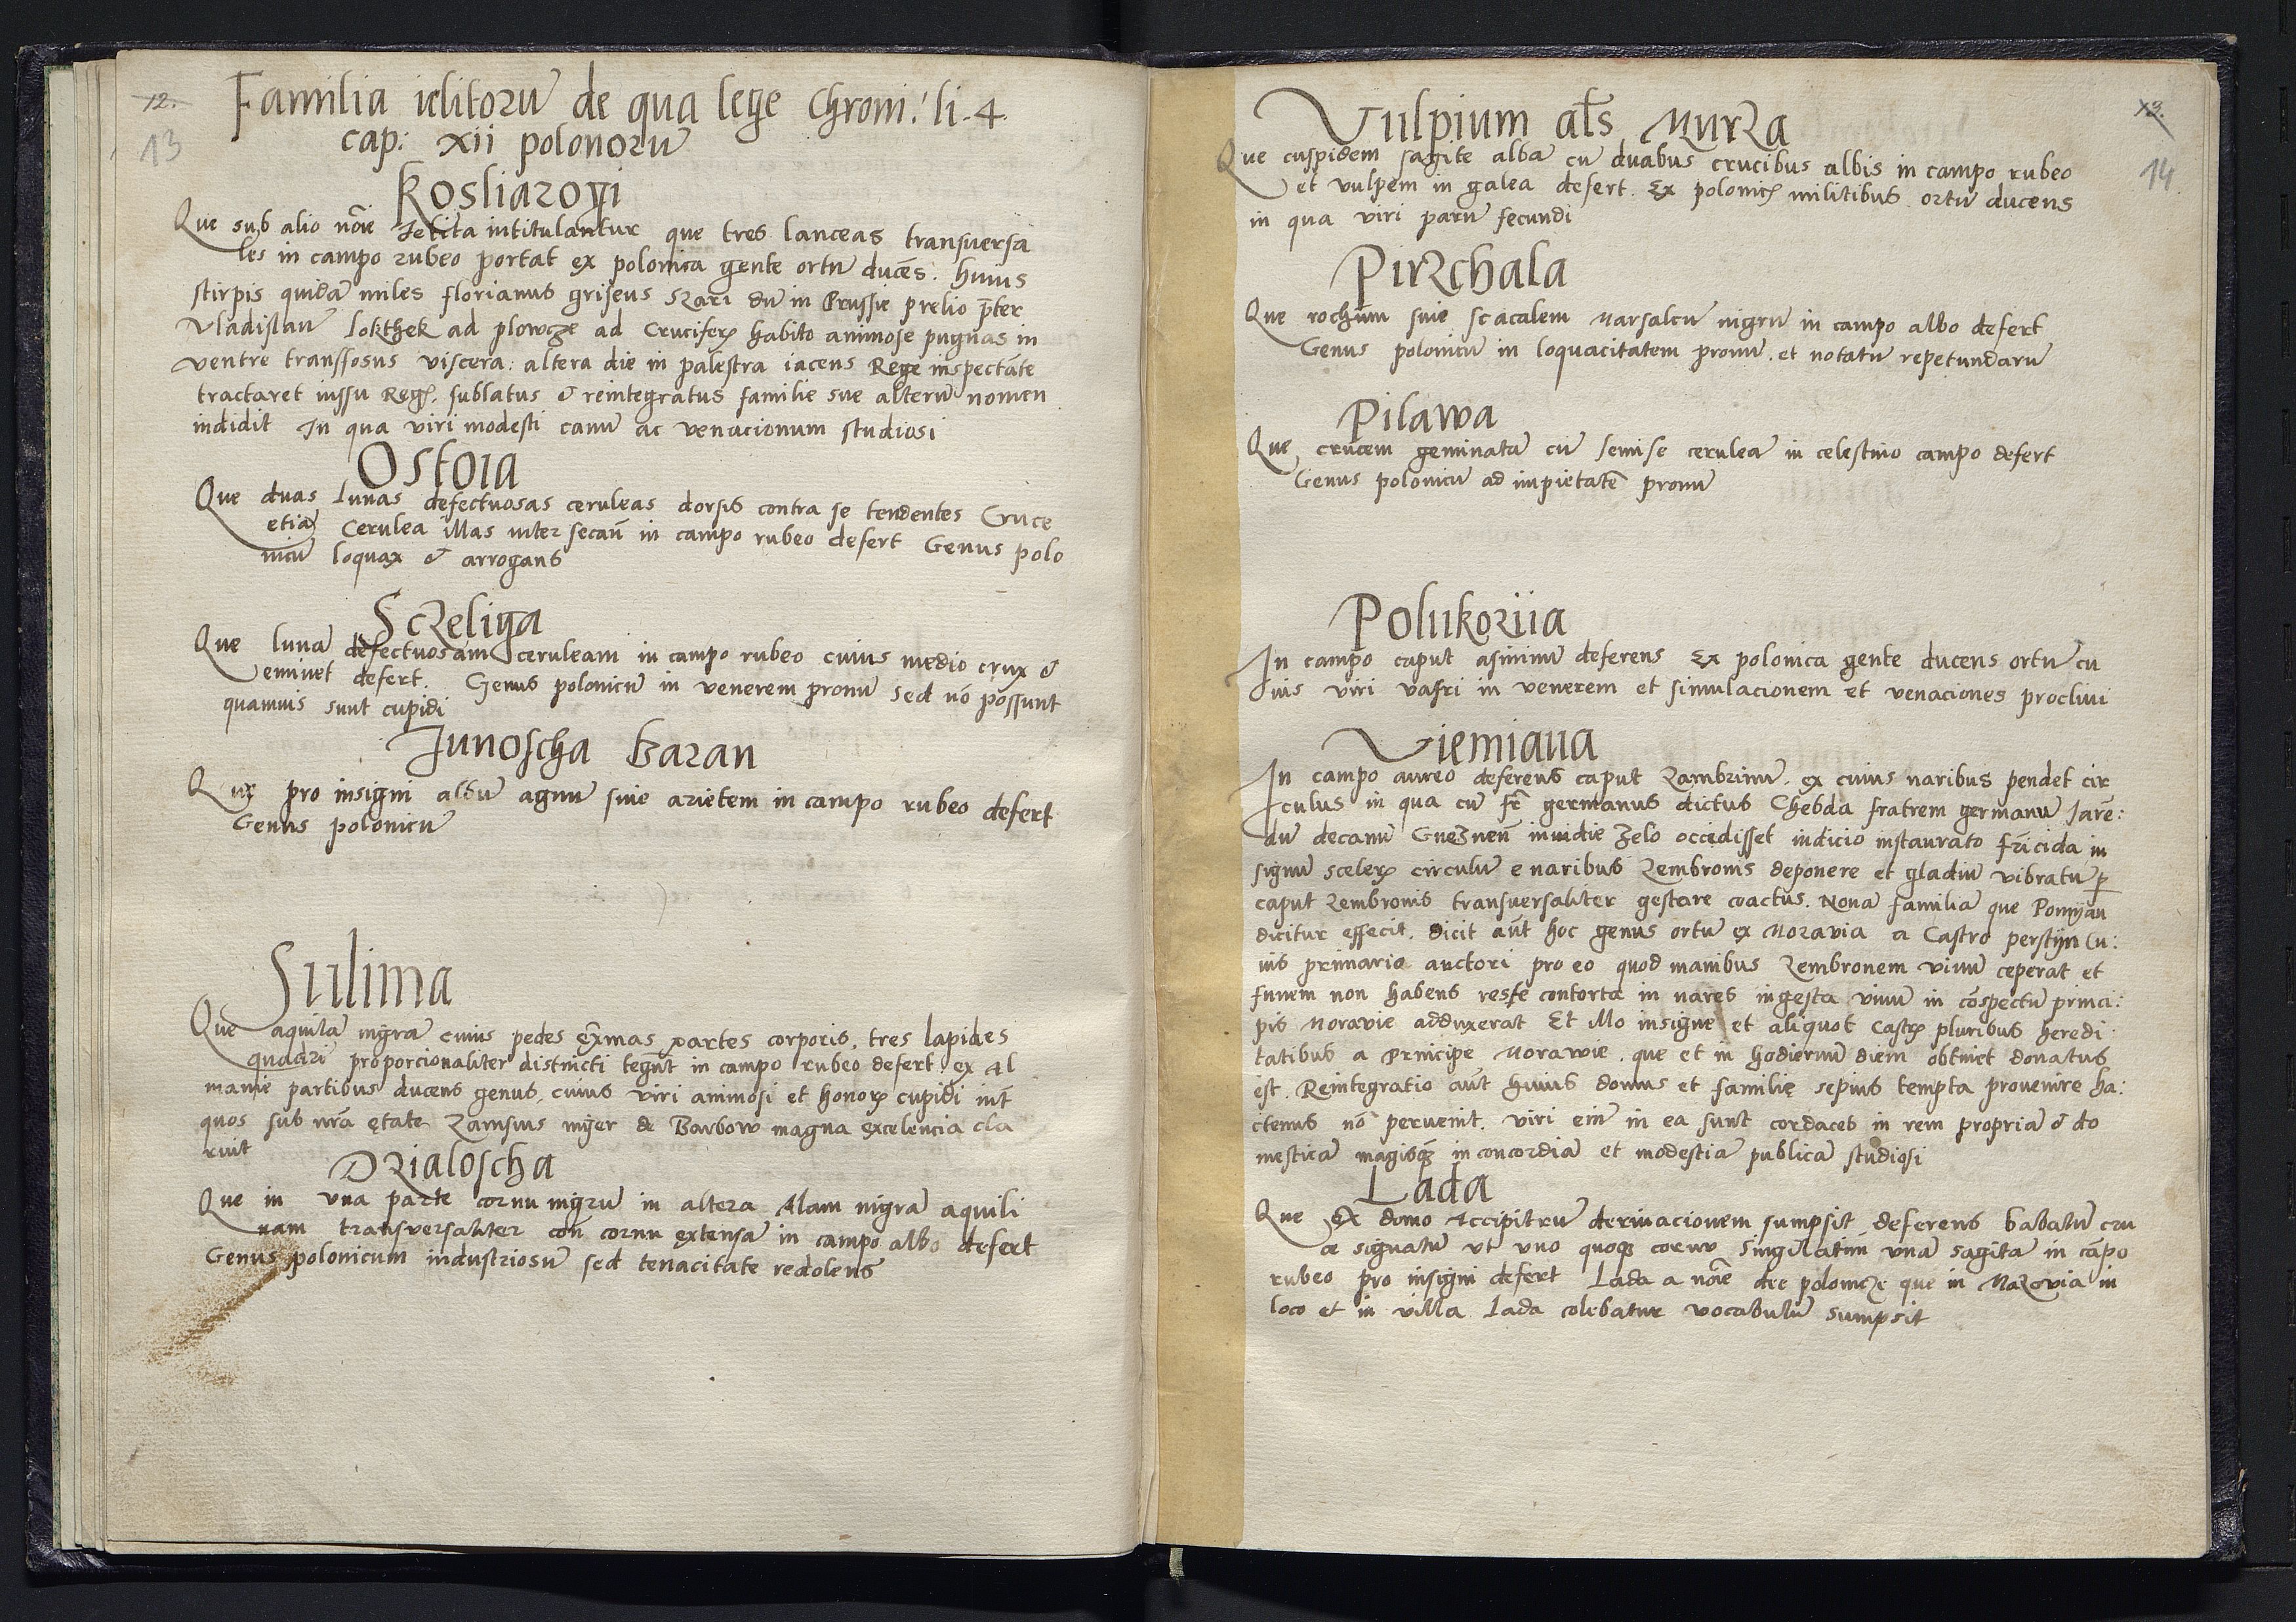 12.
13
Familia ielitorū de qua lege Chroni: li. 4.
cap: xii polonorū
Kosliarogi
Que sub alio nōie Jelita intitulantur que tres lanceas transuersa
les in campo rubeo portat ex polonica gente ortū ducēs. huius
stirpis quidā miles florianus griseus Szari dū in Prussie prelio p̄ter
Vladislaū lokthek ad plowcze ad Crucifer habito animose pugnās in
ventre transfosus viscera: altera die in palestra iacens Rege inspectāte
tractaret iussu Reg. sublatus & reintegratus familie sue alterū nomen
indidit In qua viri modesti canū ac venacionum studiosi
Ostoia
Que duas lunas defectuosas ceruleas dorsis contra se tendentes Cruce
etiā Cerulea illas intersecañ in campo rubeo defert Genus polo
nicū loquax & arrogans
Sczeliga
Que lunā defectuosam ceruleam in campo rubeo cuius medio crux &
eminet defert. Genus polonicū in venerem pronū sed nō possunt
quamuis sunt cupidi
Junoscha Baran
Que pro insigni albū agnū siue arietem in campo rubeo defert
Genus polonicū
Sulima
Que aquilā nigrā cuius pedes exīmas partes corporis, tres lapides
quadri proporcionaliter distincti tegūt in campo rubeo defert, ex Al
manie partibus ducens genus, cuius viri animosi et honor cupidi int
quos sub nrā ętate Zarnsius niger de Barbow magna excelencia cla
ruit
Dzialoscha
Que in vna parte cornu nigrū in altera Alam nigrā aquili
nam transversaliter con cornu extensā in campo albo defert
Genus polonicum industriosū sed tenacitate redolens
13.
14
Vulpium als Murza
Que cuspidem sagite albā cū duabus crucibus albis in campo rubeo
et vulpem in galea defert. Ex polonic militibus ortū ducens
in qua viri parū fecundi
Pirzchala
Que rochum siue scacalem Marsalcū nigrū in campo albo defert
Genus polonicū in loquacitatem pronū, et notatū repetundarū
Pilawa
Que crucem geminatā cū semise ceruleā in celestino campo defert
Genus polonicū ad impietatē pronū
Polukoziia
In campo caput asininū deferens Ex polonica gente ducens ortū cu
ius viri vafri in venerem et simulacionem et venaciones procliui
Viemiaua
In campo aureo deferens caput Zambrinū, ex cuius naribus pendet cir
culus in qua cū fr̄ germanus dictus Chebda fratrem germanū Jarē:
dū decanū Gnezneñ inuidie zelo occidisset iudicio instaurato fr̄icida in
signū sceler circulū e naribus Zembronis deponere et gladiū vibratū p
caput Zembronis transuersaliter gestare coactus. Nouā familiā que Pomyan
dicitur effecit. dicit aūt hoc genus ortū ex Moravia a Castro perstijn Cu:
ius primario auctori pro eo quod manibus Zembronem viuū ceperat et
funem non habens reste contorta in nares ingesta viuū in cōspectū princi:
pis Moravie adduxerat Et illo insigne et aliquot Castr pluribus heredi
tatibus a Principe Morawie, que et in hodiernū diem obtinet donatus
est. Reintegratio aūt huius domus et familię sepius tempta prouenire ha:
ctenus nō peruenit. viri eiñ in ea sunt cordaces in rem propriā & do
mesticā magisq in concordiā et modestiā publicā studiosi
Lada
Que ex domo Accipitrū deriuacionem sumpsit deferens babatū cru
ce signatū ut uno quoq cornu singilatim vnā sagitā in cāpo
rubeo pro insigni defert Lada a nōie dee polonicze que in Mazovia in
loco et in villa Lada colebatur vocabulū sumpsit